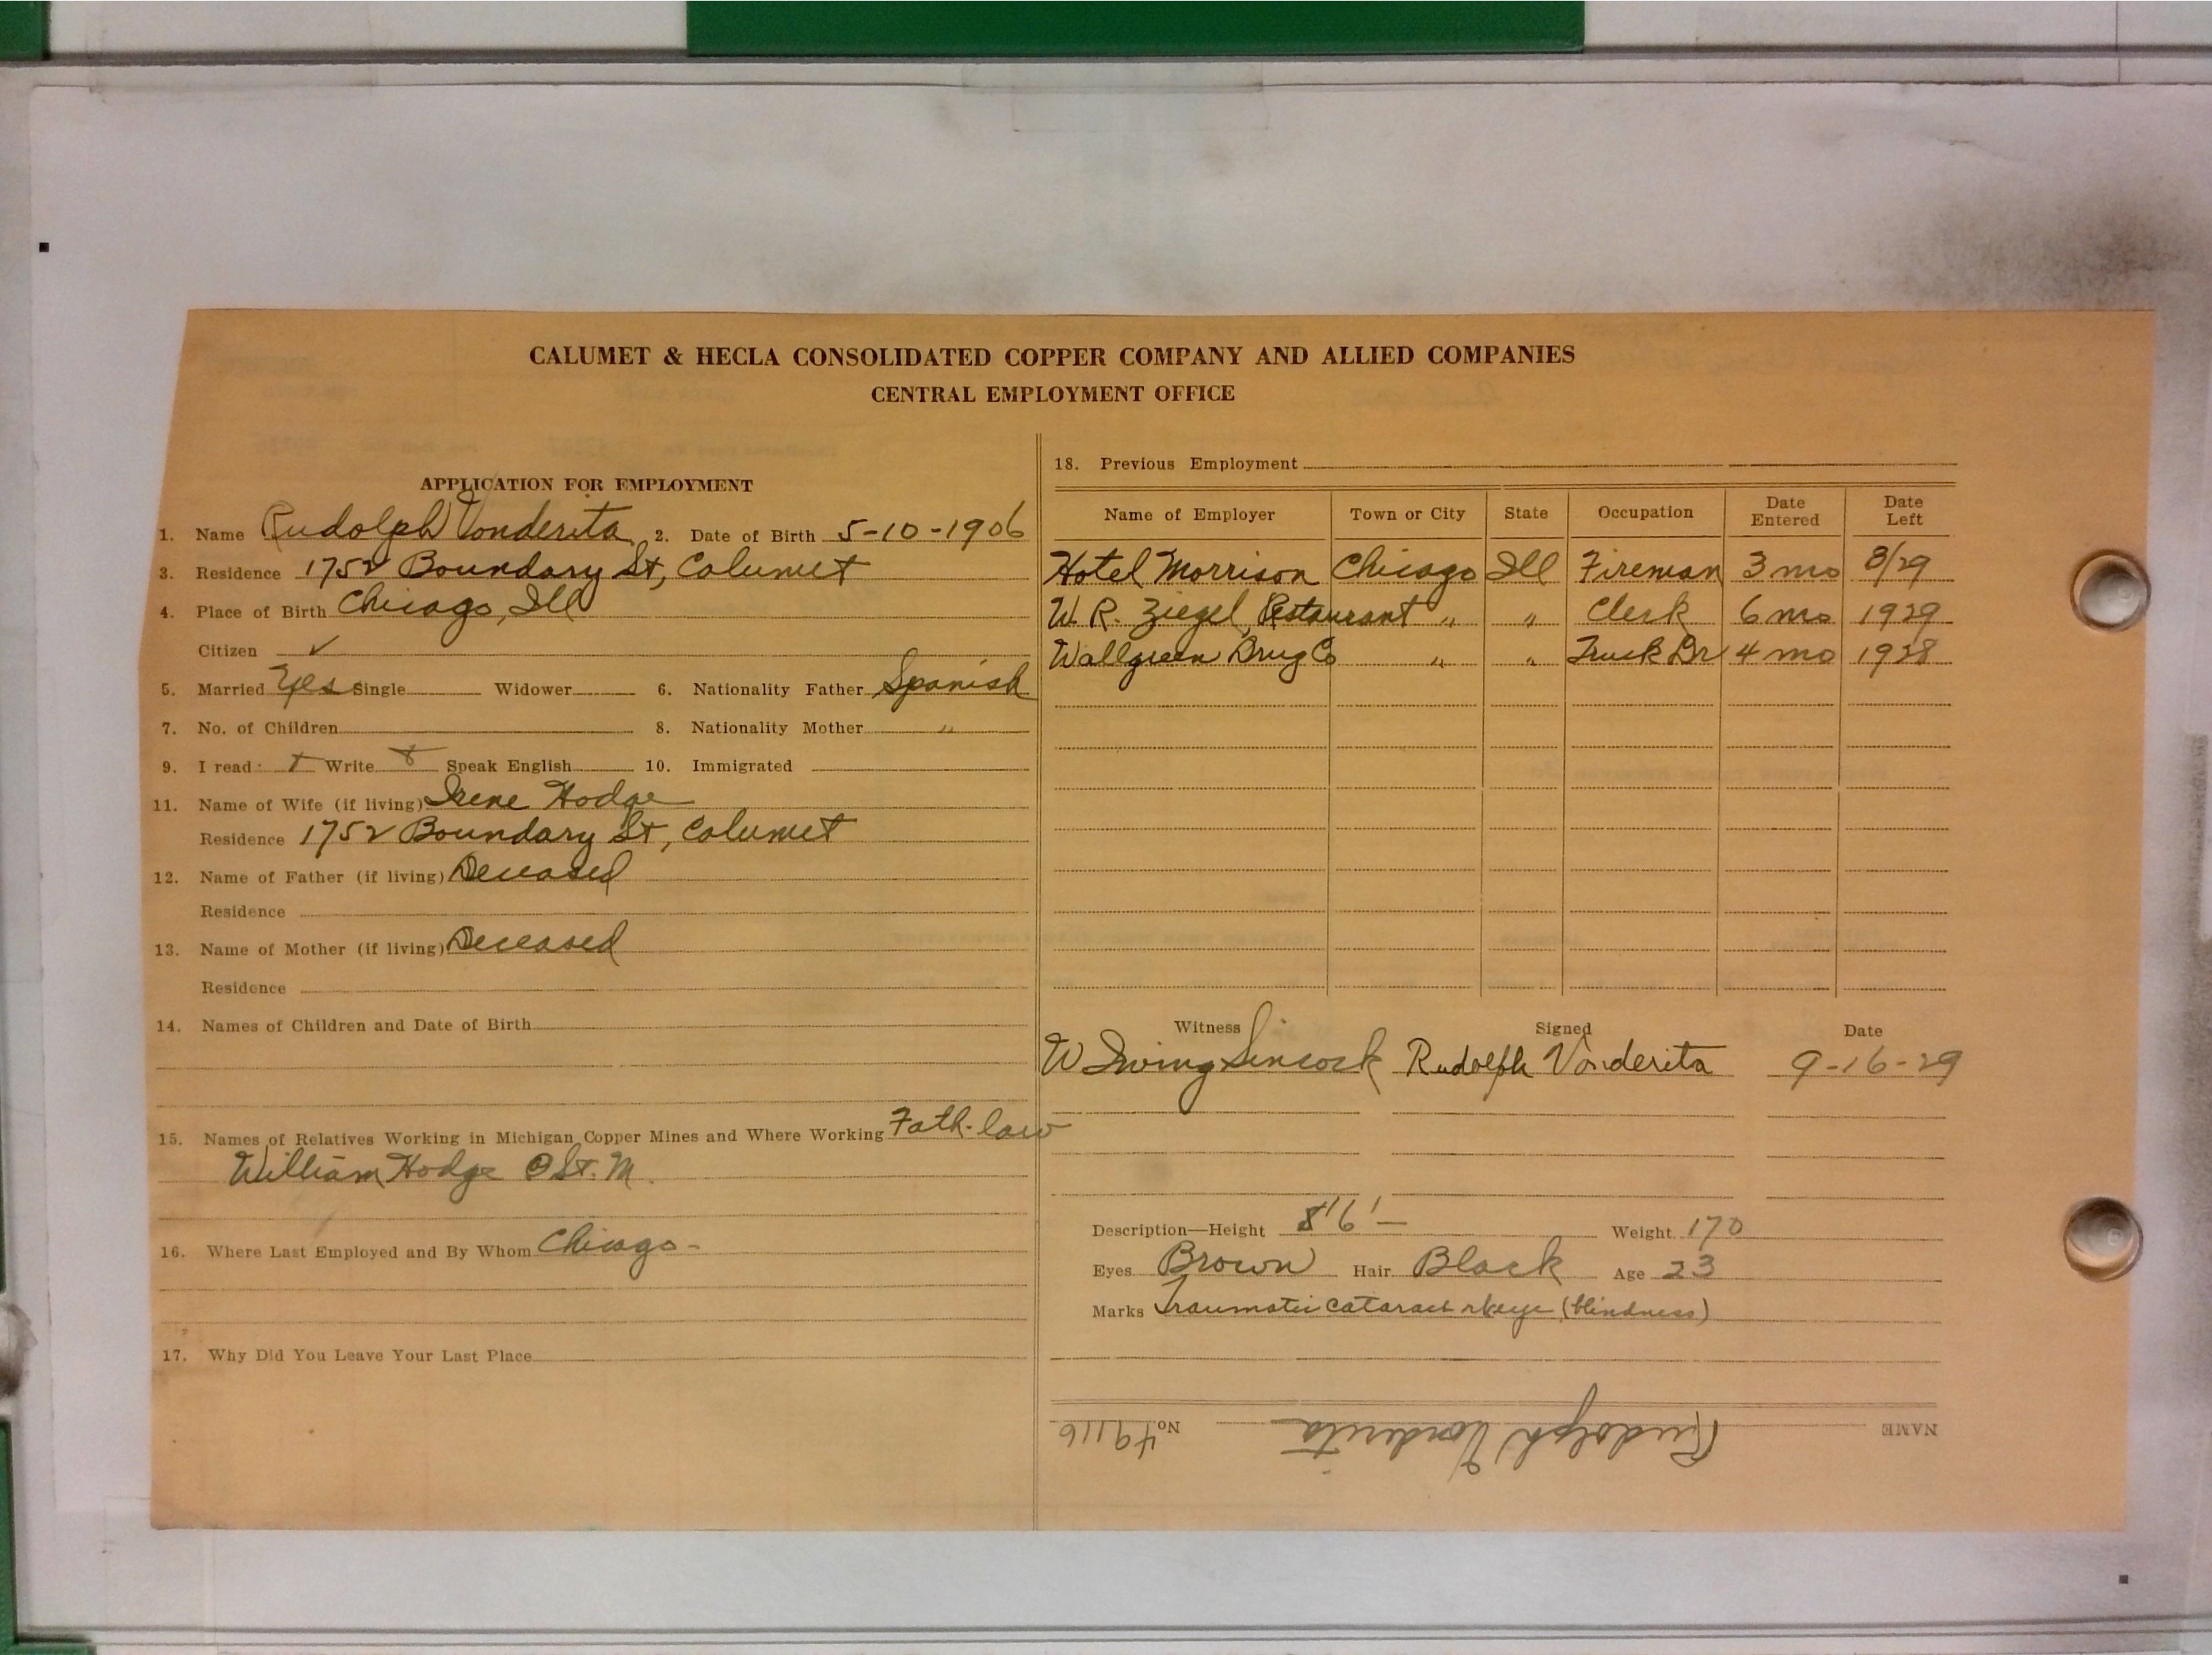 CALUMET & HECLA CONSOLIDATED COPPER COMPANY AND ALLIED COMPANIES
CENTRAL EMPLOYMENT OFFICE
APPLICATION FOR EMPLOYMENT
1. Name Rudolph Vonderita 2. Date of Birth 5-10-1906
3. Residence 1752 Boundary St, Calumet
4. Place of Birth Chicago, Ill
Citizen ✓
5. Married Yes Single Widower 6. Nationality Father Spanish
7. No. of Children 8. Nationality Mother "
9. I read Write Speak English 10. Immigrated
11. Name of Wife (if living) Irene Hodge
Residence 1752 Boundary St, Calumet
12. Name of Father (if living) Deceased
Residence
13. Name of Mother (if living) Deceased
Residence
14. Names of Children and Date of Birth
15. Names of Relatives Working in Michigan Copper Mines and Where Working Fath-law
William Hodge @ St. M.
16. Where Last Employed and By Whom Chicago -
17. Why Did You Leave Your Last Place
18. Previous Employment
Name of Employer Town or City State Occupation Date Entered Date Left
Hotel Morrison Chicago Ill Fireman 3 mo 8/29
W. R. Ziegel, Restaurant " " Clerk 6 mo 1929
Wallgreen Drug Co " " Truck Dr 4 mo 1928
Witness Signed Date
W Irving Sincock Rudolph Vonderita 9-16-29
Description—Height Weight 170
Eyes Brown Hair Black Age 23
Marks Traumatic cataract (blindness)
NAME Rudolph Vonderita No. 49116